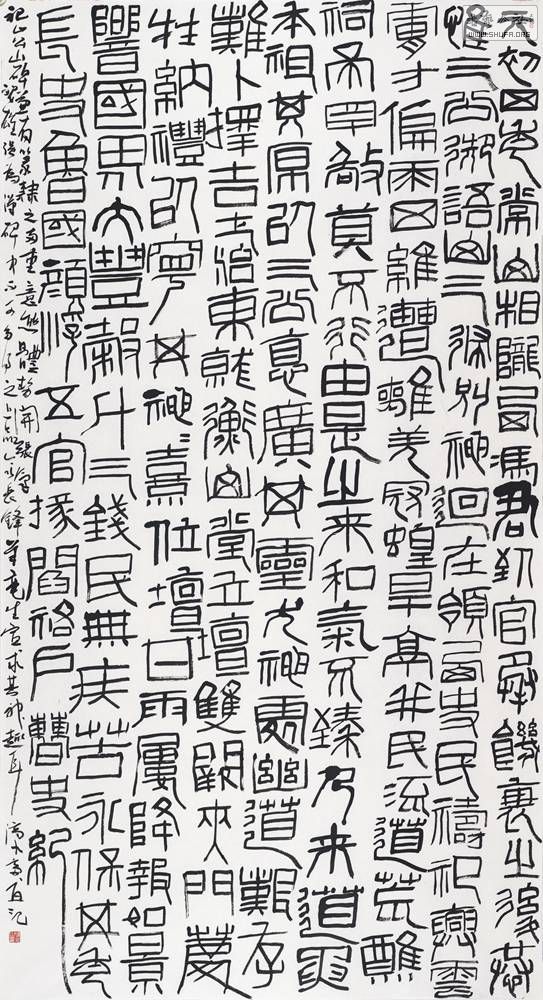 元初四年常山相隴西馮君到官承饑衰之後
惟三公御語山三條別神迥在領西吏民禱祀興雲
膚寸偏雨四維遭離羌寇蝗旱鬲并民流道荒醮
祠希罕敬奠不行由是之來和氣不臻乃來道要
本祖其原以三公德廣其靈尤神處幽道艱存
難卜擇吉土治東就衡山堂立壇雙闕夾門薦
牲納禮以寧其神神熹位壇甘雨屢降報如景
響國界大豐穀斗三錢民無疾苦永保其年
長史魯國顏浮五官掾閻祐戶曹史紀
祀三公山碑蓋有篆隸之兩重意趣體勢開張
求其神趣耳
WWW.SHUFA.ORG